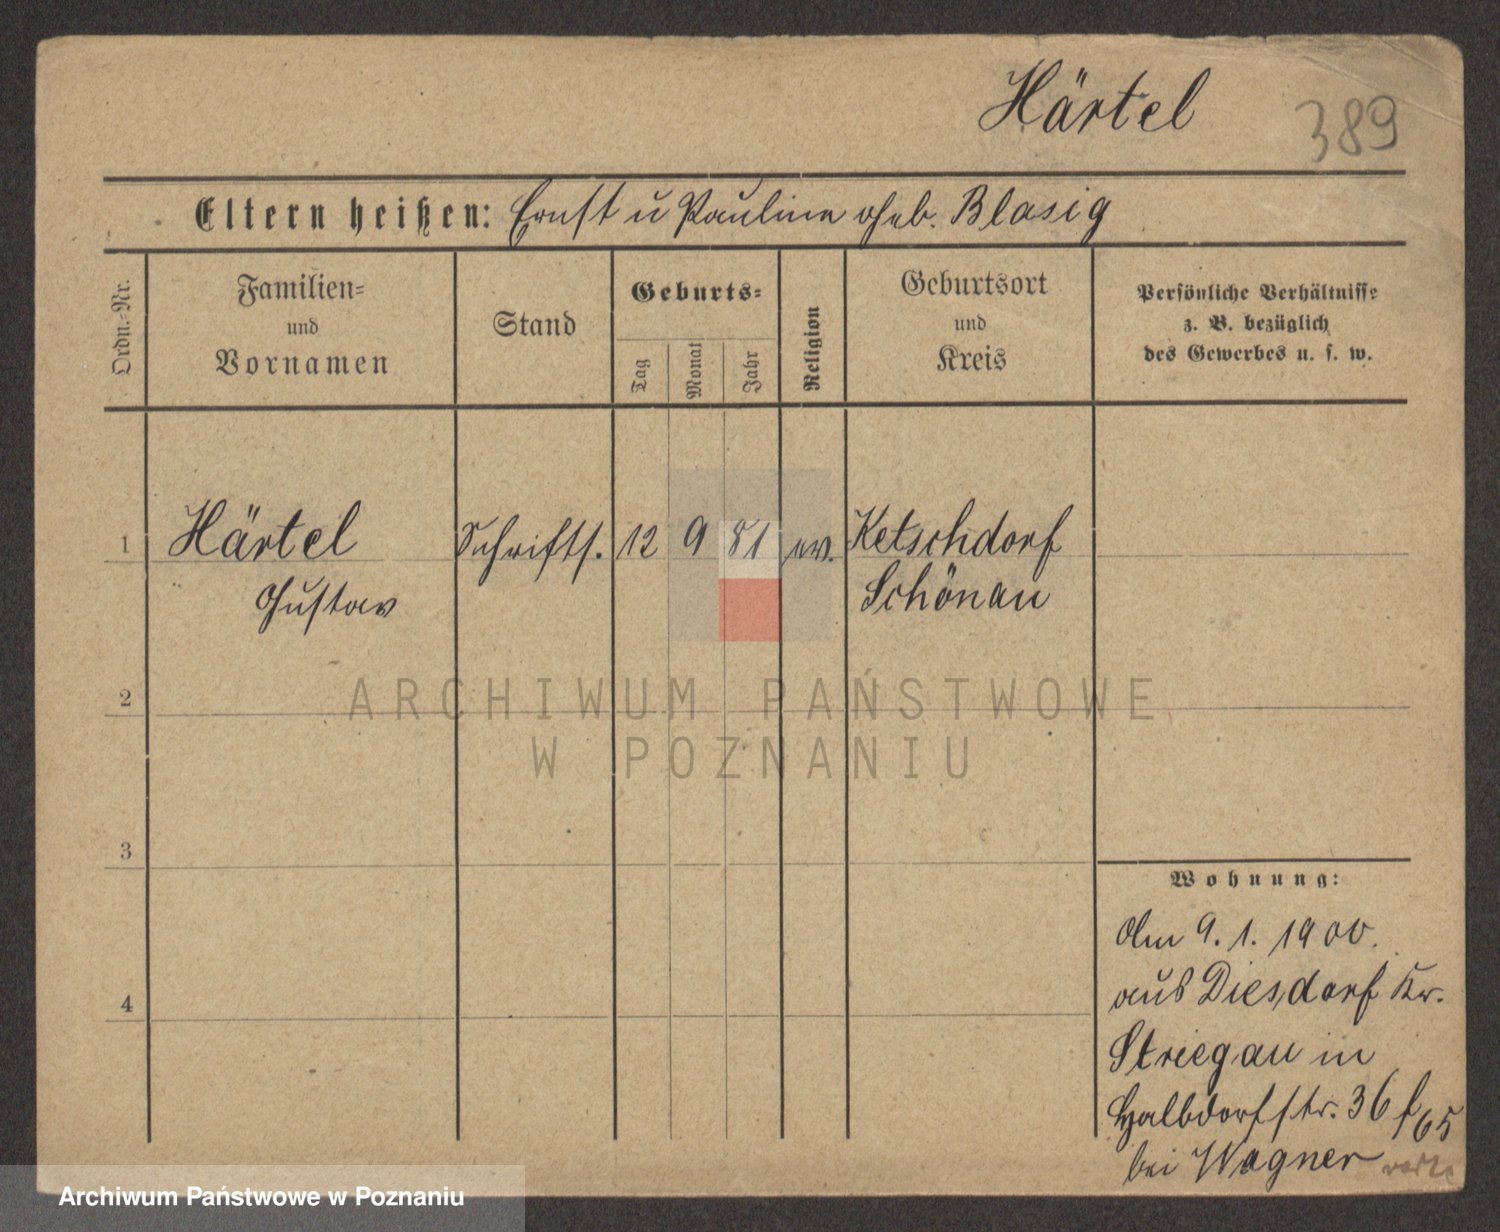 Härtel 389
Eltern heißen: Ernst u Pauline geb. Blasig
Ordn.-Nr.
Familien-
und
Vornamen
Stand
Geburts-
Tag
Monat
Jahr
Religion
Geburtsort
und
Kreis
Persönliche Verhältnisse
z. B. bezüglich
des Gewerbes u. s. w.
1 Härtel Schrifts. 12 9 81 ev. Ketschdorf
Gustav Schönau
2
ARCHIWUM PAŃSTWOWE
W POZNANIU
3
Wohnung:
Am 9. 1. 1900.
aus Diesdorf Kr.
4
Striegau in
Halbdorfstr. 36 f 65
bei Wagner
Archiwum Państwowe w Poznaniu